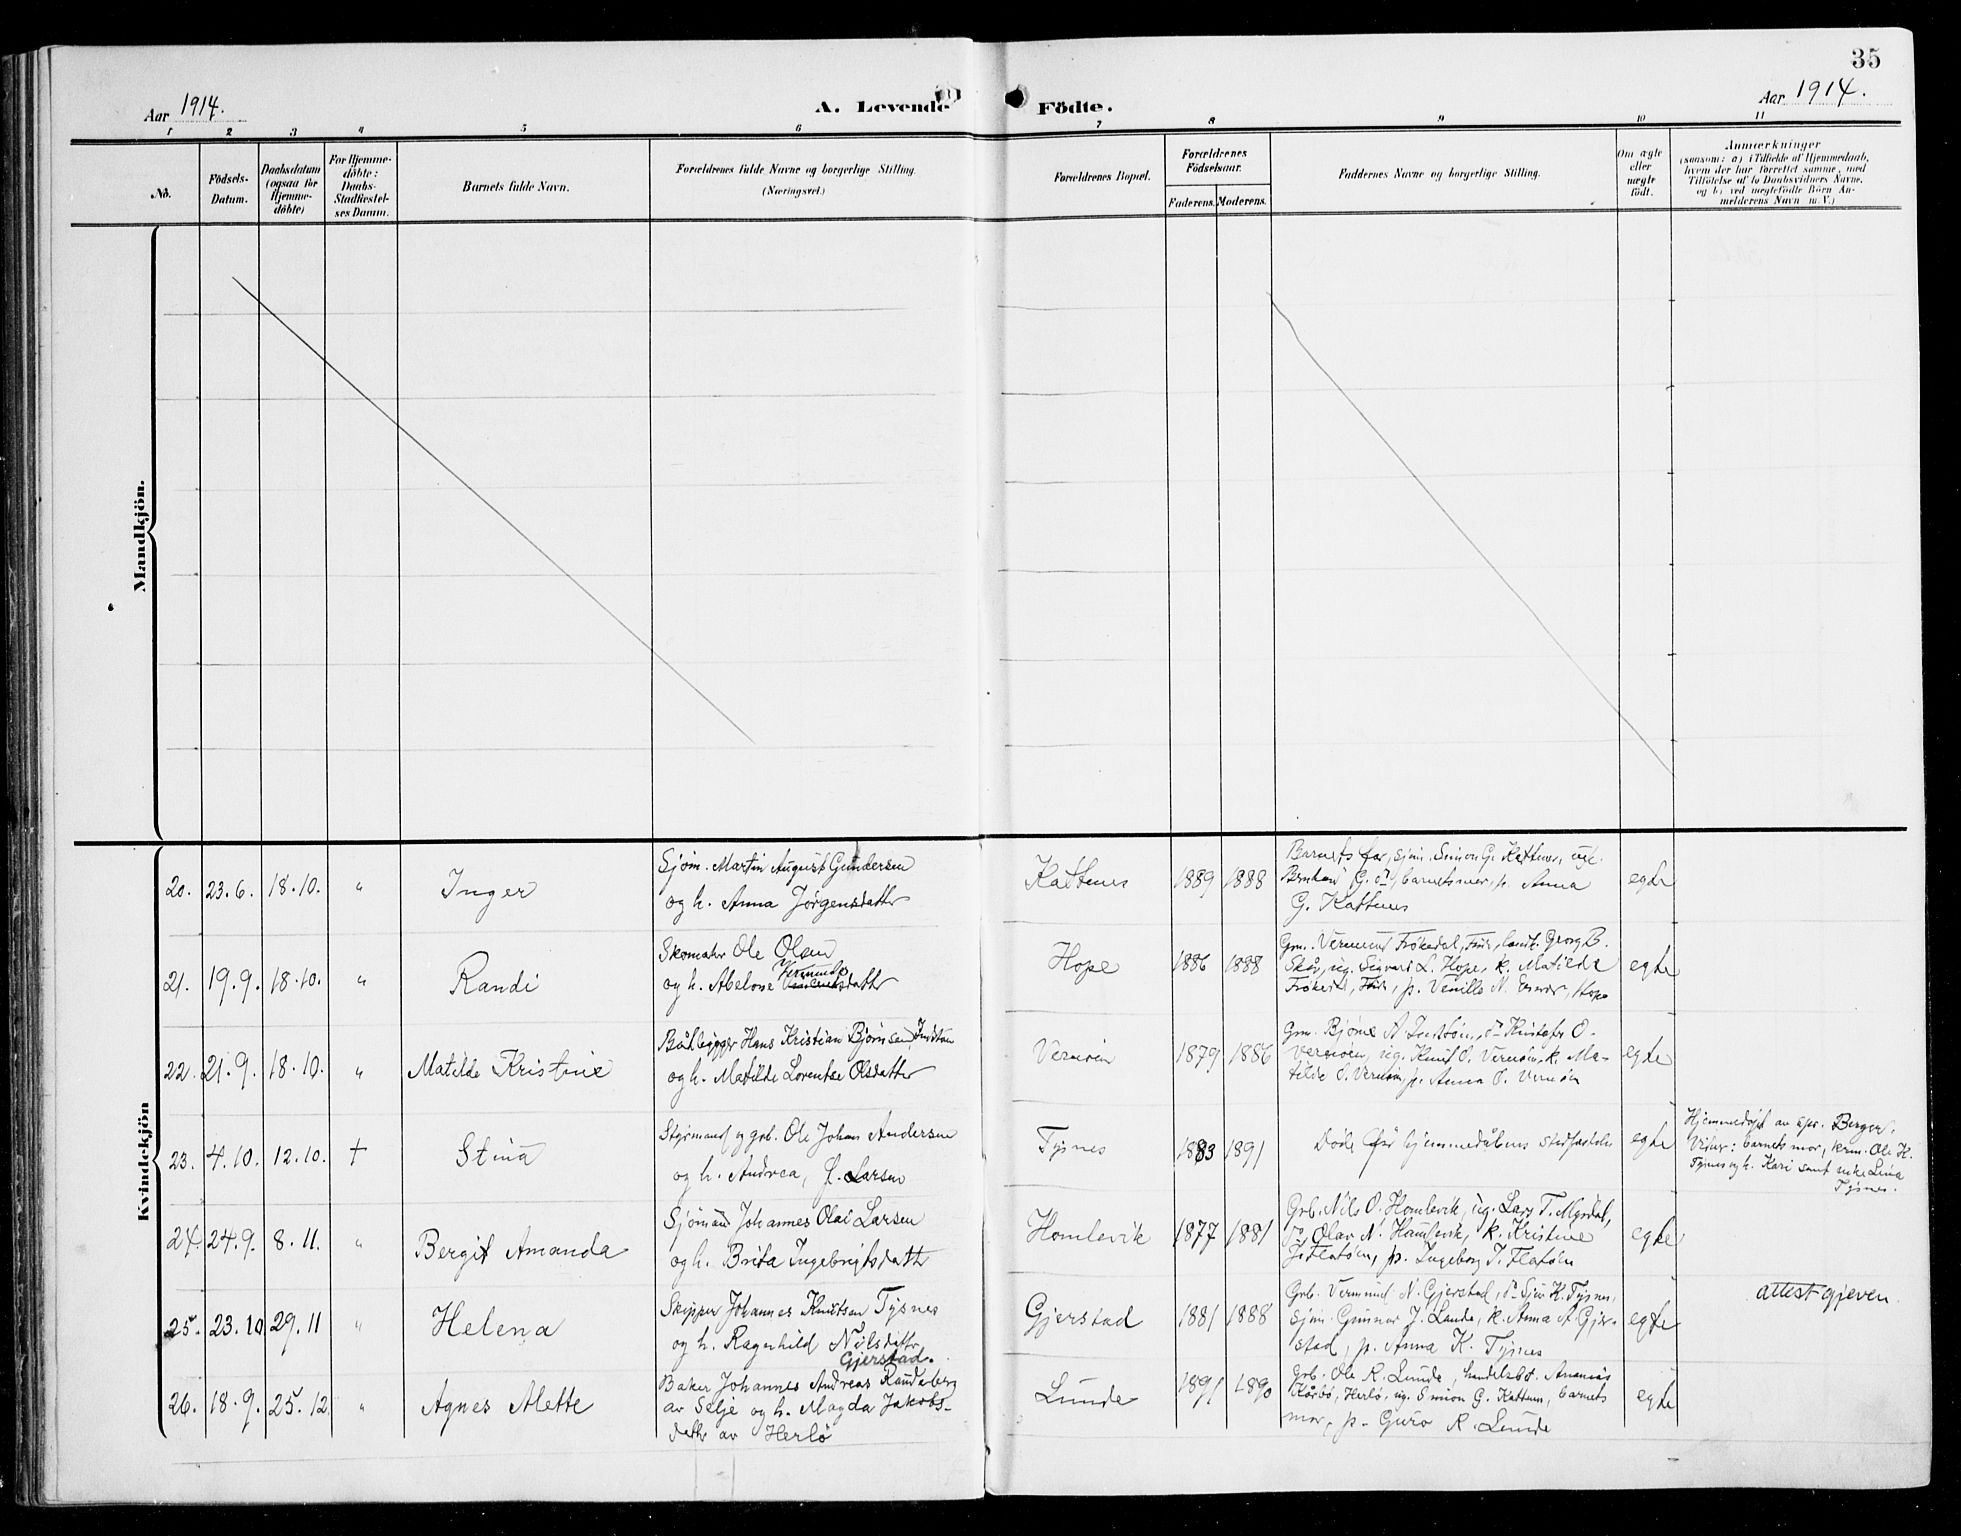 35
Aar 1914.
A. Levende Födte.
Aar 1914.
1 2 3 4 5 6 7 8 9 10 11
No.
Födsels-Datum.
Daabsdatum (ogsaa for Hjemme-döbte)
For Hjemme-döbte: Daabs-Stadfæstel-ses Datum.
Barnets fulde Navn.
Forældrenes fulde Navne og borgerlige Stilling.
(Næringsvei.)
Forældrenes Bopæl.
Forældrenes Födselsaar.
Faderens. Moderens.
Faddernes Navne og borgerlige Stilling.
Om ægte eller uægte födt.
Anmærkninger
(saasom: a) i Tilfælde af Hjemmedaab,
hvem der har forrettet samme, med
Tilföielse af to Daabsvidners Navne.
og b) ved uægtefödte Börn An-
melderens Navn m. V.)
Mandkjön.
Kvindekjön
20. 23.6. 18.10. " Inger
Sjøm. Martin August Gundersen
og h. Anna Jørgensdatter
Kattnes 1889 1888
Barnets far, sjøm. Simon G. Kattnes, ug.
Bernhard G. do, barnets mor, p. Anna
G. Kattnes
egte
21. 19.9. 18.10. " Randi
Skomaker Ole Olsen
og h. Abelone Vermundsdatter
Hope 1886 1888
Gm. Vermund Frøkedal, landh. Georg B.
Skår, ug. Sigvard L. Hope, k. Matilde
Frøkedal, p. Venille N. Hope
egte
22. 21.9. 18.10. " Matilde Kristine
Båtbygger Hans Kristian Bjørnsen
og h. Matilde Lorentse Olsdatter
Vernøin 1879 1886
Gm. Bjørne A. do Kristofer O.
Vernøen, ug. Knut O. Vernøin, k. Ma-
tilde O. Vernøin, p. Anna O. Vernøin
egte
23. 4.10. 12.10. † Stina
Styrmand og grb. Ole Johan Andersen
og h. Andrea, f. Larsen
Tysnes 1883 1891
Døde før hjemmedåbens stadfæstelse
egte
Hjemmedøpt av Berger.
Vitner: barnets mor, krm. Ole H.
Tysnes og h. Kari samt enke Lina
Tysnes.
24. 24.9. 8.11. " Bergit Amanda
Sjømand Johannes Olai Larsen
og h. Brita Ingebrigtsdatter
Homlevik 1877 1881
Grb. Nils O. Homlevik, ug. Lars T. Myrdal,
do Olav N. Homlevik, k. Kristine
J. Flatøen, p. Ingeborg J. Flatøen
egte
25. 23.10 29.11 " Helena
Skipper Johannes Knutsen Tysnes
og h. Ragnhild Nilsdatter
Gjerstad.
Gjerstad 1881 1888
Grb. Vermund N. Gjerstad, do Sjur K. Tysnes,
sjøm. Gunnar J. Lunde, k. Anna N. Gjer-
stad, p. Anna K. Tysnes
egte
attest gjeven.
26. 18.9. 25.12. " Agnes Alette
Baker Johannes Andreas Raudeberg
av Selje og h. Magda Jakobs-
datter av Herlø
Lunde 1891 1890
Grb. Ole R. Lunde, handelsb. Ananias
Kårbø, Herlø, ug. Simon G. Kattnes, barnets
mor, p. Guro R. Lunde
egte